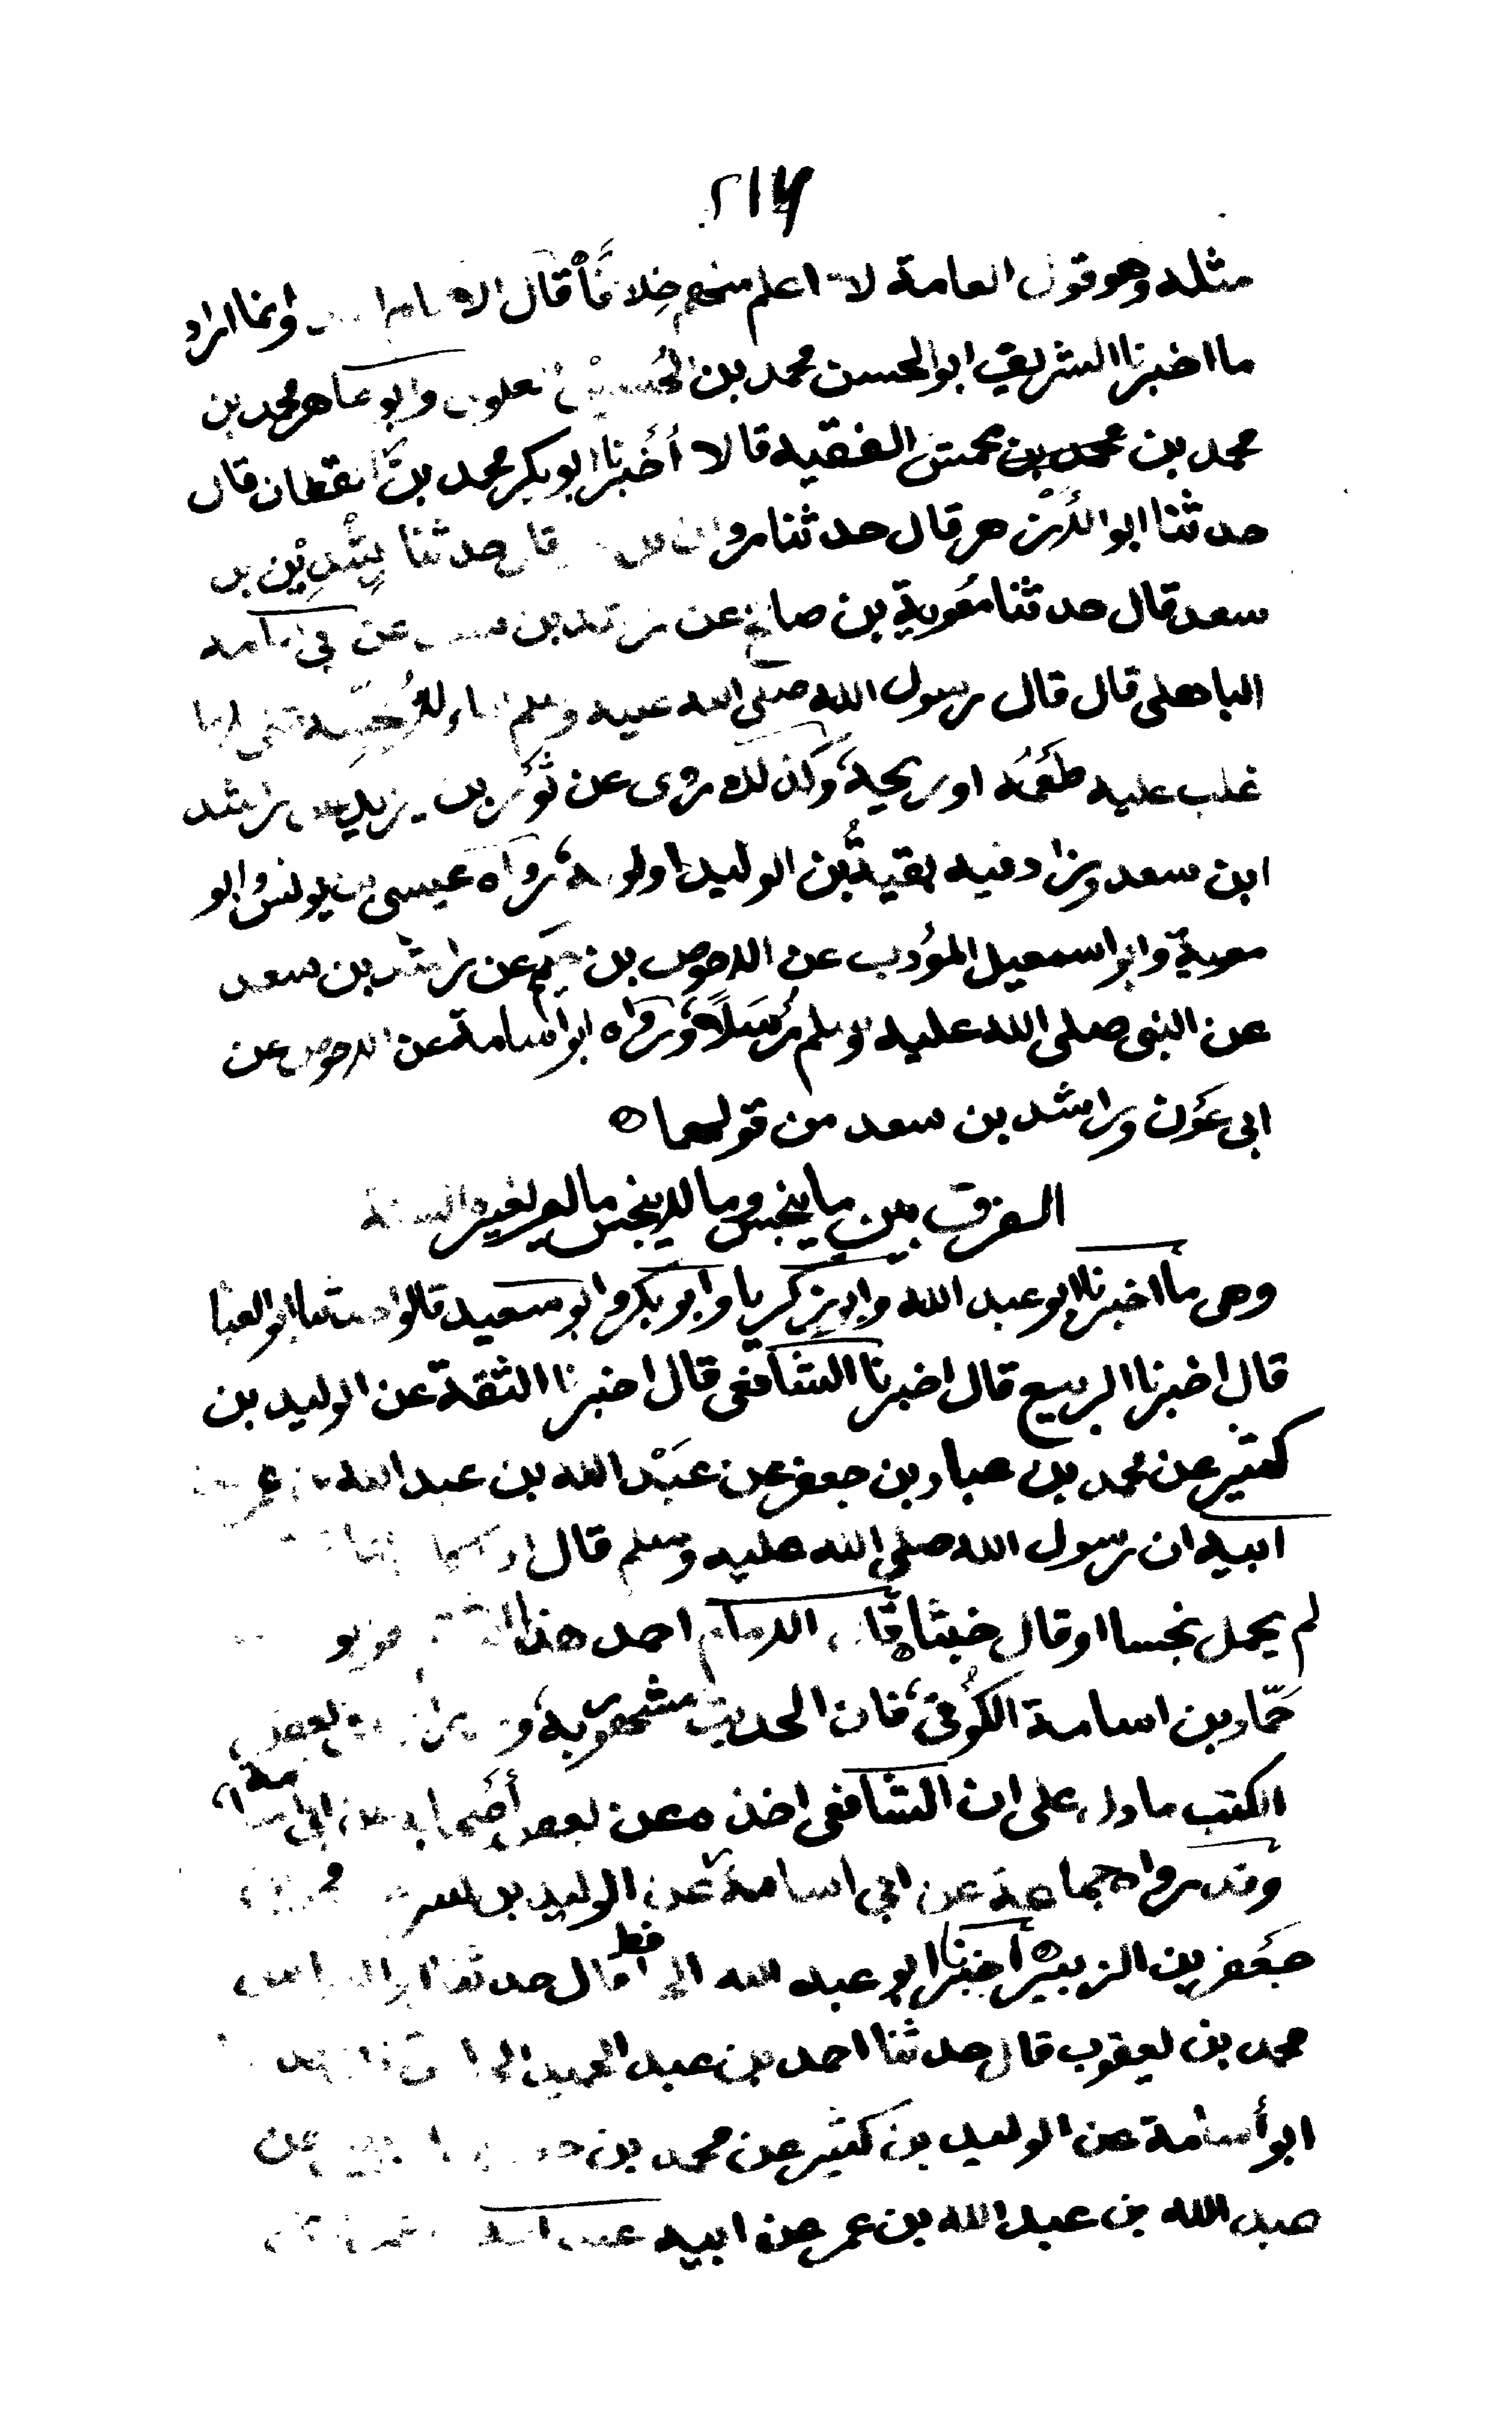 ٢١٦
مثله وهو قول العامة لا اعلم منهم خلافا قال الامام وانما اراد
ما اخبرنا الشريف ابو الحسن محمد بن الحسين العلوي وابو طاهر محمد بن
محمد بن محمد بن محمش الفقيه قالا أخبرنا ابو بكر محمد بن القطان قال
حدثنا ابو الأزهر قال حدثنا مروان بن قال حدثنا رشدين بن
سعد قال حدثنا معوية بن صالح عن راشد بن سعد عن ابي امامه
الباهلي قال قال رسول الله صلى الله عليه وسلم الماء لا ينجسه شئ الا ما
غلب عليه طعمه او ريحه وكذلك روى عن ثور بن يزيد عن راشد
ابن سعد وزاد فيه بقية بن الوليد او لونه ورواه عيسى بن يونس وابو
معوية وابو اسمعيل المؤدب عن الاحوص بن حكيم عن راشد بن سعد
عن النبي صلى الله عليه وسلم مرسلاً ورواه ابو اسامة عن الاحوص عن
ابي عون وراشد بن سعد من قولهما ٥
الفرق بين ما ينجس وما لا ينجس ما لم يغير
وهى ما اخبرنا ابو عبد الله وابو زكريا وابو بكر وابو سعيد قالوا حدثنا ابو العبا
قال اخبرنا الربيع قال اخبرنا الشافعى قال اخبرنا الثقة عن الوليد بن
كثير عن محمد بن عباد بن جعفر عن عبد الله بن عبد الله بن عمر عن
ابيه ان رسول الله صلى الله عليه وسلم قال اذا كان الماء
لم يحمل نجسا او قال خبثا قال الامام احمد هذا الثقة هو ابو
حمّاد بن اسامة الكوفى فان الحديث مشهور به و بعض
الكتب ما دل على ان الشافعى اخذه عن بعض أصحابه عن ابي اسامة
وقد رواه جماعة عن ابي اسامة عن الوليد بن كثير محمد بن
جعفر بن الزبير ٥ أخبرنا ابو عبد الله الحافظ قال حدثنا ابو العباس
محمد بن يعقوب قال حدثنا احمد بن عبد الحميد
ابو أسامة عن الوليد بن كثير عن محمد بن جعفر بن الزبير عن
عبد الله بن عبد الله بن عمر عن ابيه